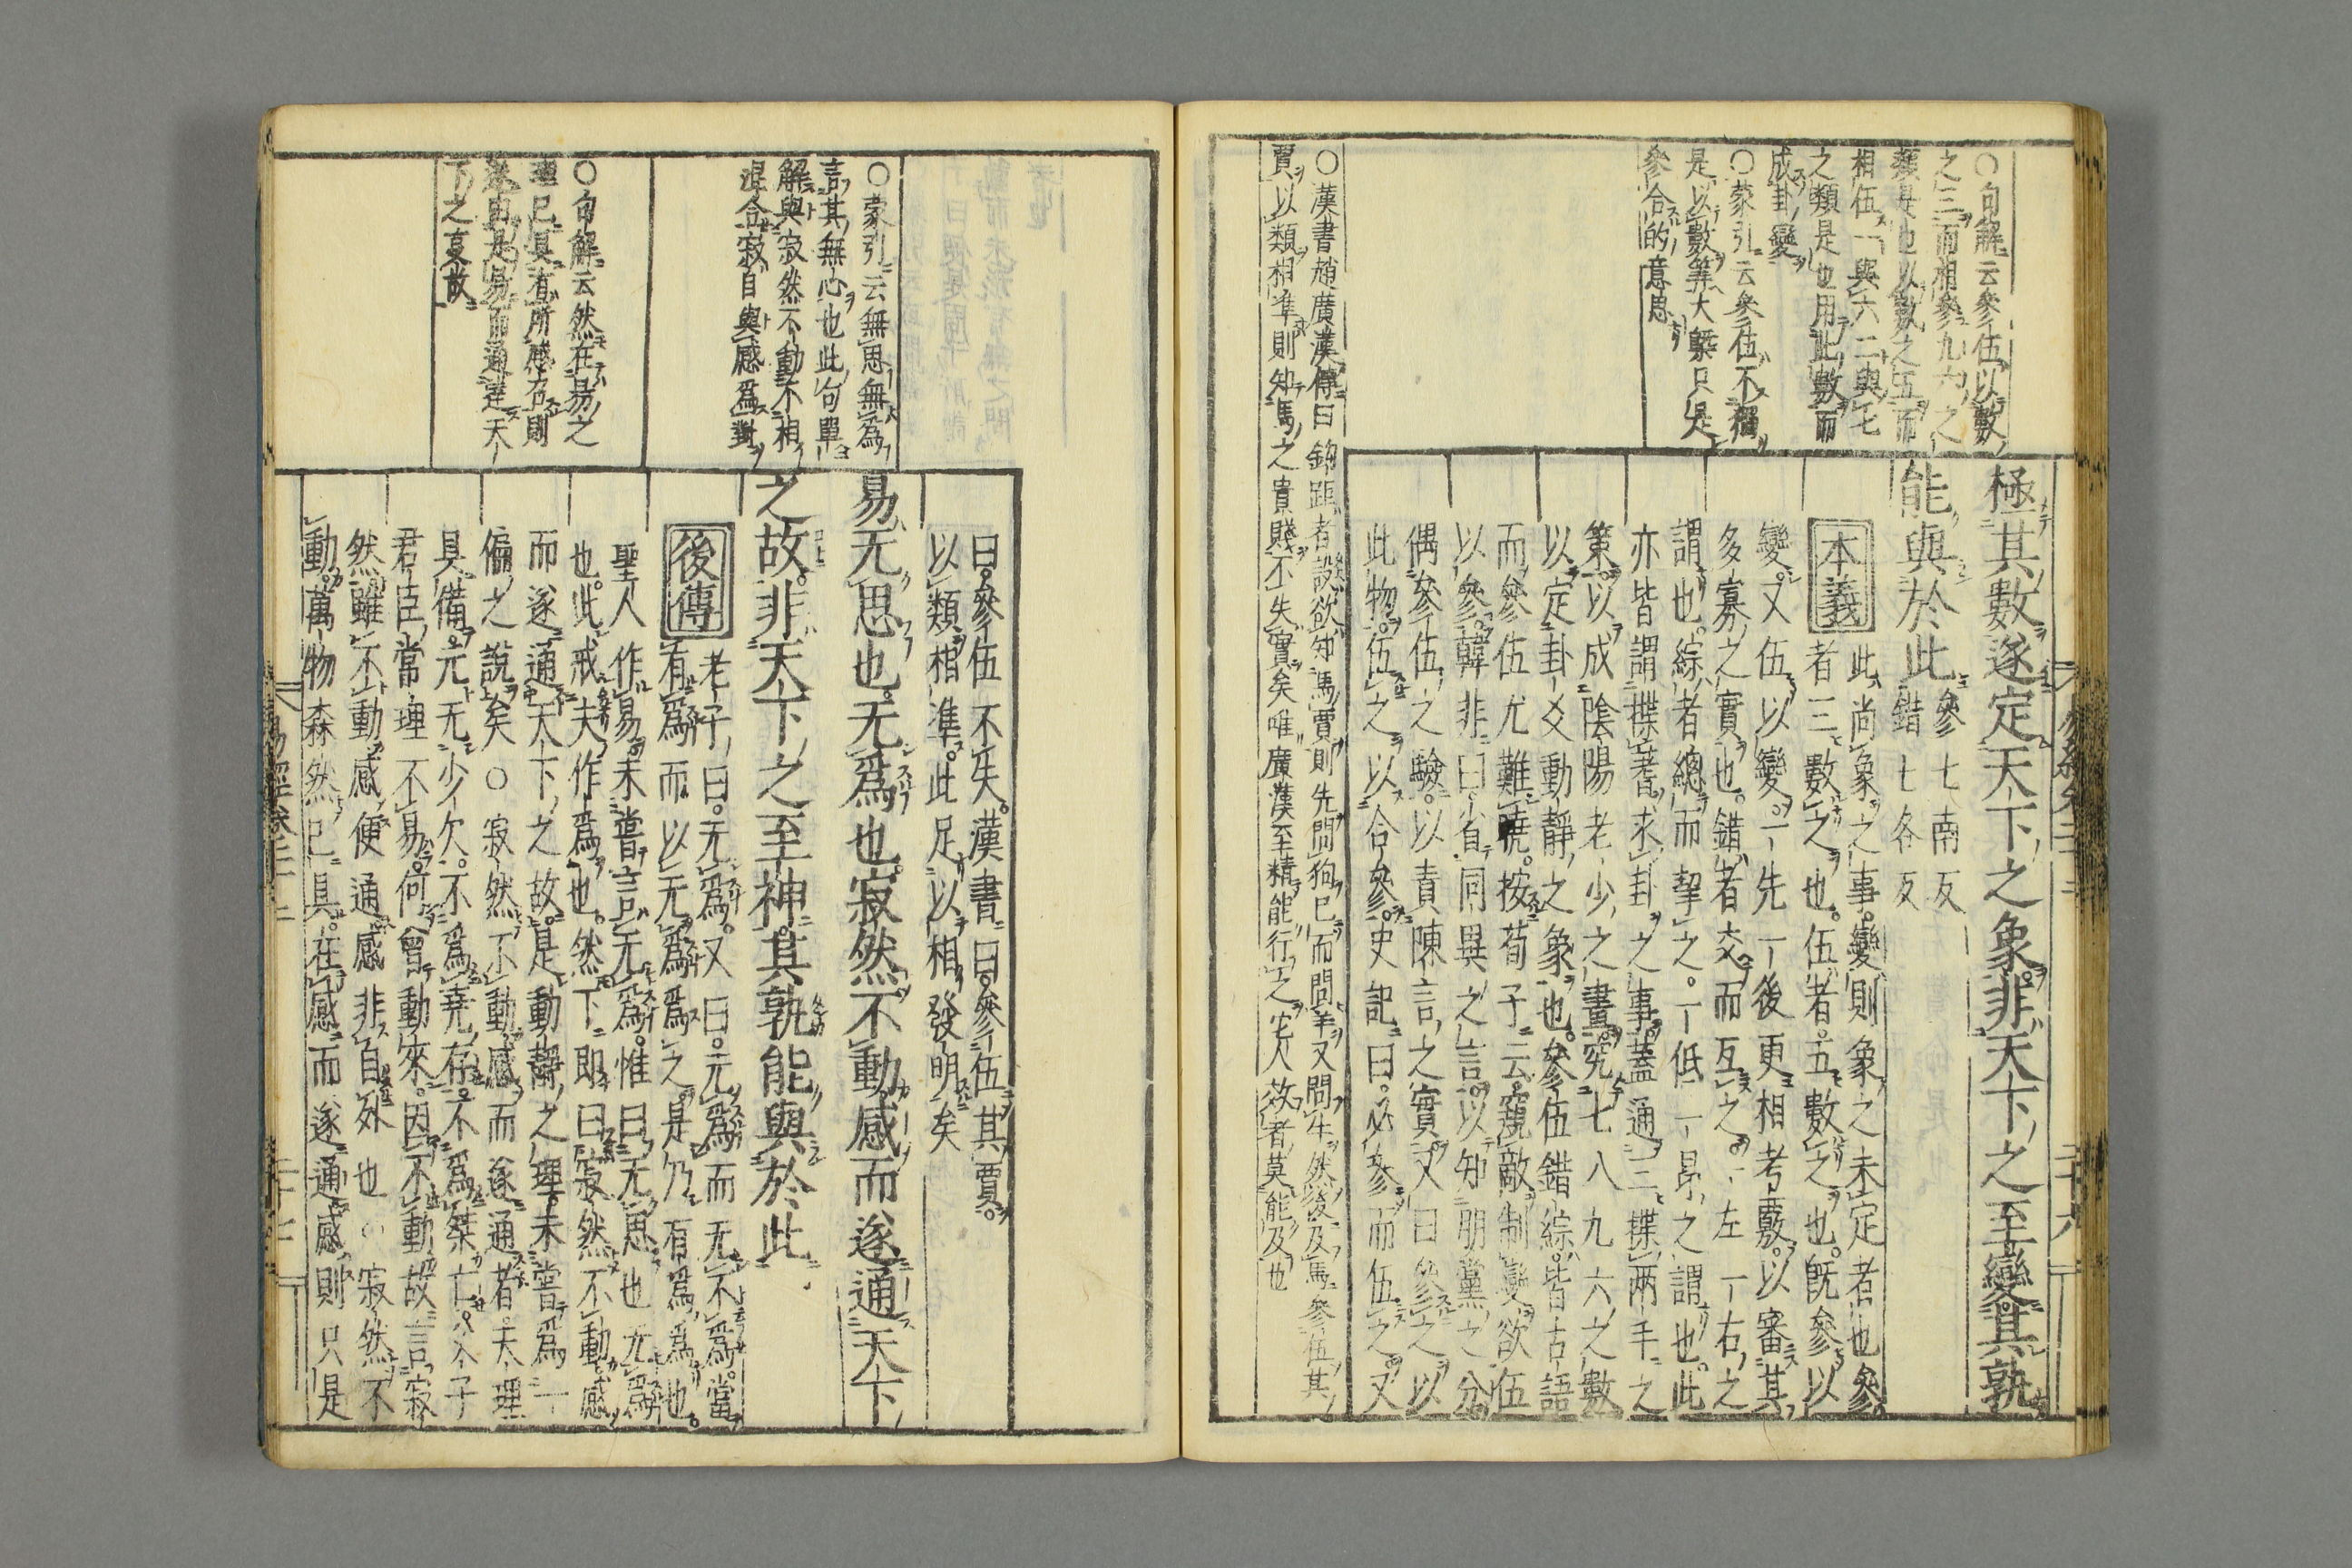 極其數遂定天下之象非天下之至變其孰
能與於此參七南反
錯七各反
本義此尚象之事變則象之未定者也參
者三數之也伍者五數之也既參以
變又伍以變一先一後更相考覈以審其
多寡之實也錯者交而互之一左一右之
謂也綜者總而挈之一低一昂之謂也此
亦皆謂揲蓍求卦之事蓋通三揲兩手之
策以成陰陽老少之畫究七八九六之數
以定卦爻動靜之象也參伍錯綜皆古語
而參伍尤難曉按荀子云窺敵制變欲伍
以參韓非曰省同異之言以知朋黨之分
偶參伍之驗以責陳言之實又曰參之以
此物伍之以合參史記曰必參而伍之又
○句解云參伍以數
之三而相參九六之
類是也以數之五而
相伍一與六二與七
之類是也用此數而
成卦變
○蒙引云參伍不獨
是以數筭大槩只是
參合的意思
○漢書趙廣漢傳曰鉤距者設欲知馬賈則先問狗已而問羊又問牛然後及馬參伍其
賈以類相準則知馬之貴賤不失實矣唯廣漢至精能行之它人效者莫能及也
曰參伍不失漢書曰參伍其賈
以類相準此足以相發明矣
易无思也无爲也寂然不動感而遂通天下
之故非天下之至神其孰能與於此
後傳老子曰无爲又曰无爲而无不爲當
有爲而以无爲爲之是乃有爲爲也
聖人作易未嘗言无爲惟曰无思也无爲
也此戒夫作爲也然下即曰寂然不動感
而遂通天下之故是動靜之理未嘗爲一
偏之說矣○寂然不動感而遂通者天理
具備元无少欠不爲堯存不爲桀亡父子
君臣常理不易何曾動來因不動故言寂
然雖不動感便通感非自外也○寂然不
動萬物森然已具在感而遂通感則只是
○蒙引云無思無爲
言其無心也此句單
解與寂然不動不相
混合寂自與感爲對
○句解云然在易之
理已具有所感石則
遂由是易而通達天
下之事故